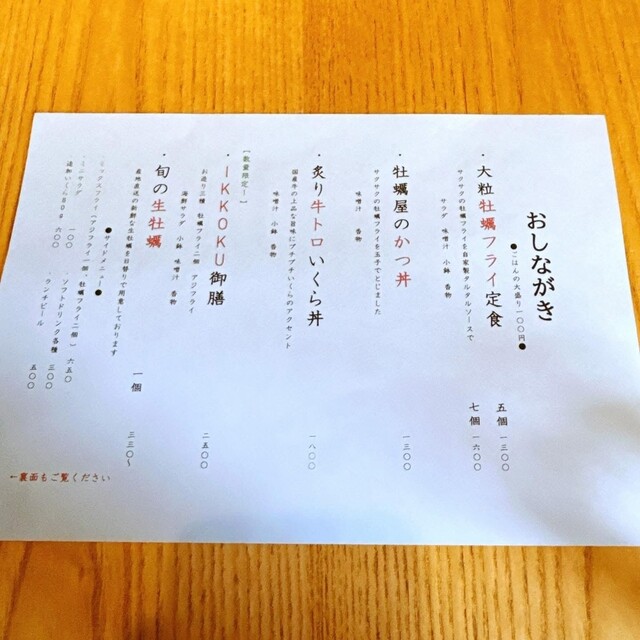 おしながき
●ごはんの大盛り一〇〇円●
・大粒牡蠣フライ定食
サクサクの牡蠣フライを自家製タルタルソースで
サラダ 味噌汁 小鉢 香物
五個 一三〇〇
七個 一六〇〇
・牡蠣屋のかつ丼
サクサクの牡蠣フライを玉子でとじました
味噌汁 香物
一三〇〇
・炙り牛トロいくら丼
国産牛の上品な旨味にプチプチいくらのアクセント
味噌汁 小鉢 香物
一八〇〇
【数量限定!】
・IKKOKU御膳
お造り三種 牡蠣フライ二個 アジフライ
海鮮サラダ 小鉢 味噌汁 香物
二五〇〇
・旬の生牡蠣
産地直送の新鮮な生牡蠣を日替りで用意しております
一個 三三〇~
●サイドメニュー●
・ミックスフライ(アジフライ一個・牡蠣フライ二個) 六五〇
・ミニサラダ 一〇〇
・ソフトドリンク各種 三〇〇
・追加いくら80g 六〇〇
・ランチビール 五〇〇
←裏面もご覧ください